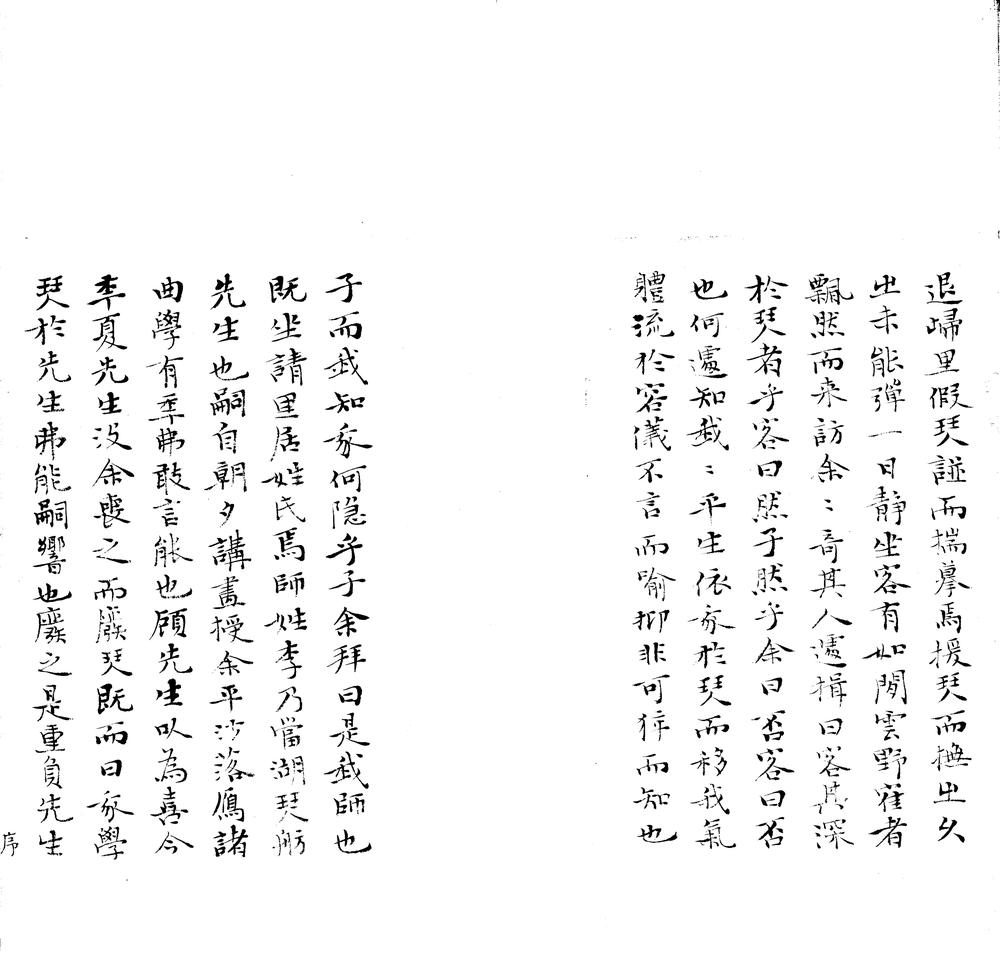 退歸里假琹譜而揣摹焉援琹而撫㞢久
㞢未能彈一日靜坐客有如閒雲野隺者
飄然而来訪余〻奇其人遽揖曰客其深
於琹者乎客曰然子然乎余曰否客曰否
也何遽知我〻平生依家於琹而移我氣
體流於容儀不言而喻抑非可猝而知也
子而我知家何隐乎子余拜曰是我師也
既坐請里居姓氏焉師姓李乃當湖琹舫
先生也嗣自朝夕講畫授余平沙落鴈諸
曲學有季弗敢言能也顧先生㕥為喜今
季夏先生沒余喪之而廢琹既而曰家學
琹於先生弗能嗣響也廢之是重負先生
序